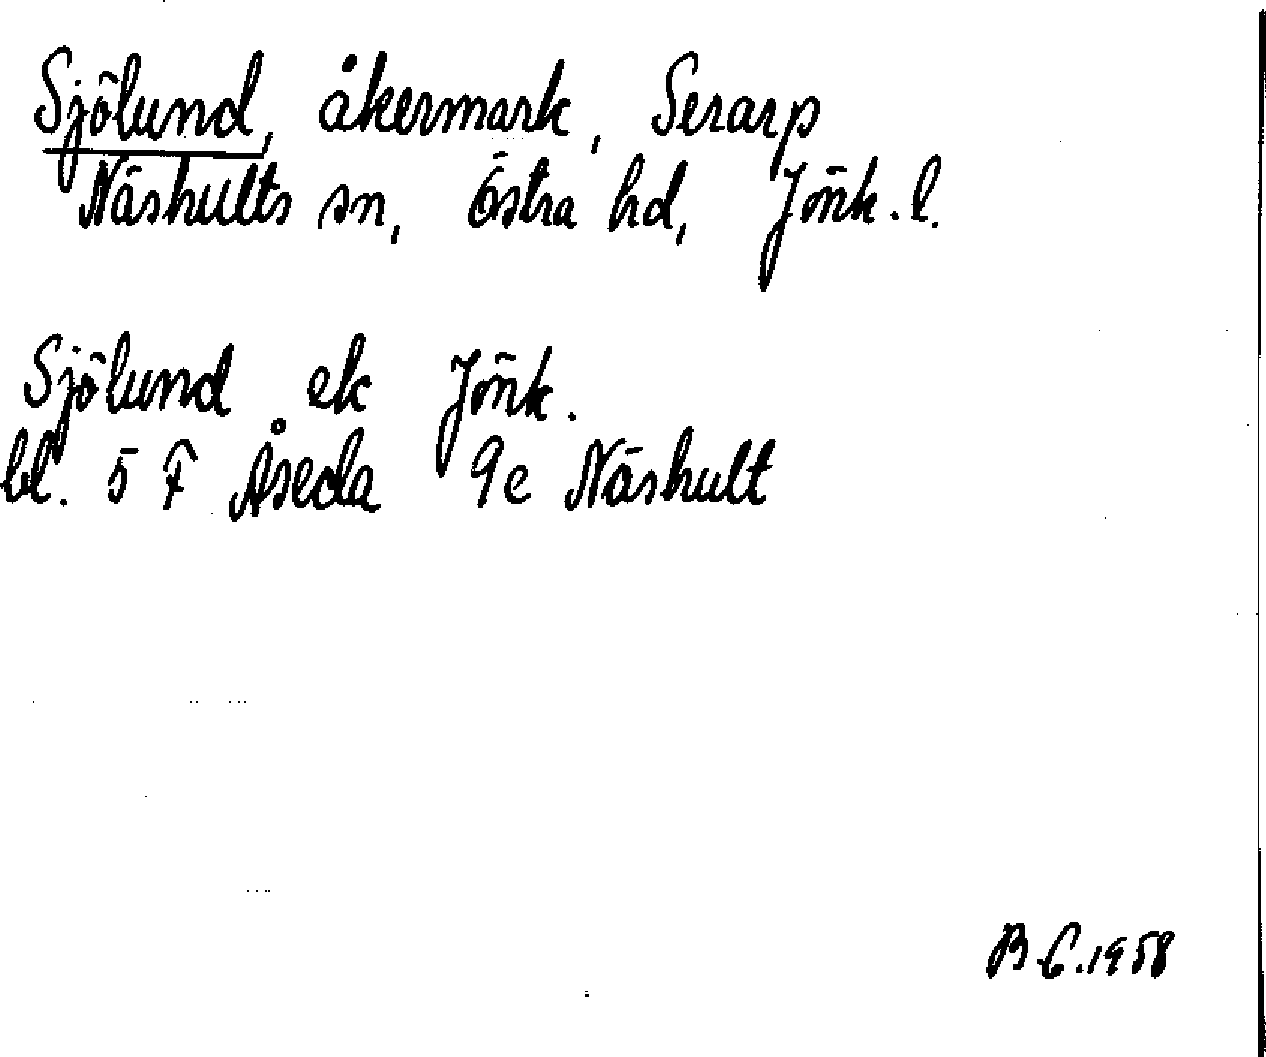 Sjölund, åkermark, Serarp
Näshults sn, Östra hd, Jönk. l.
Sjölund ek Jönk.
bl. 5 F Åseda 9e Näshult
B G. 1958